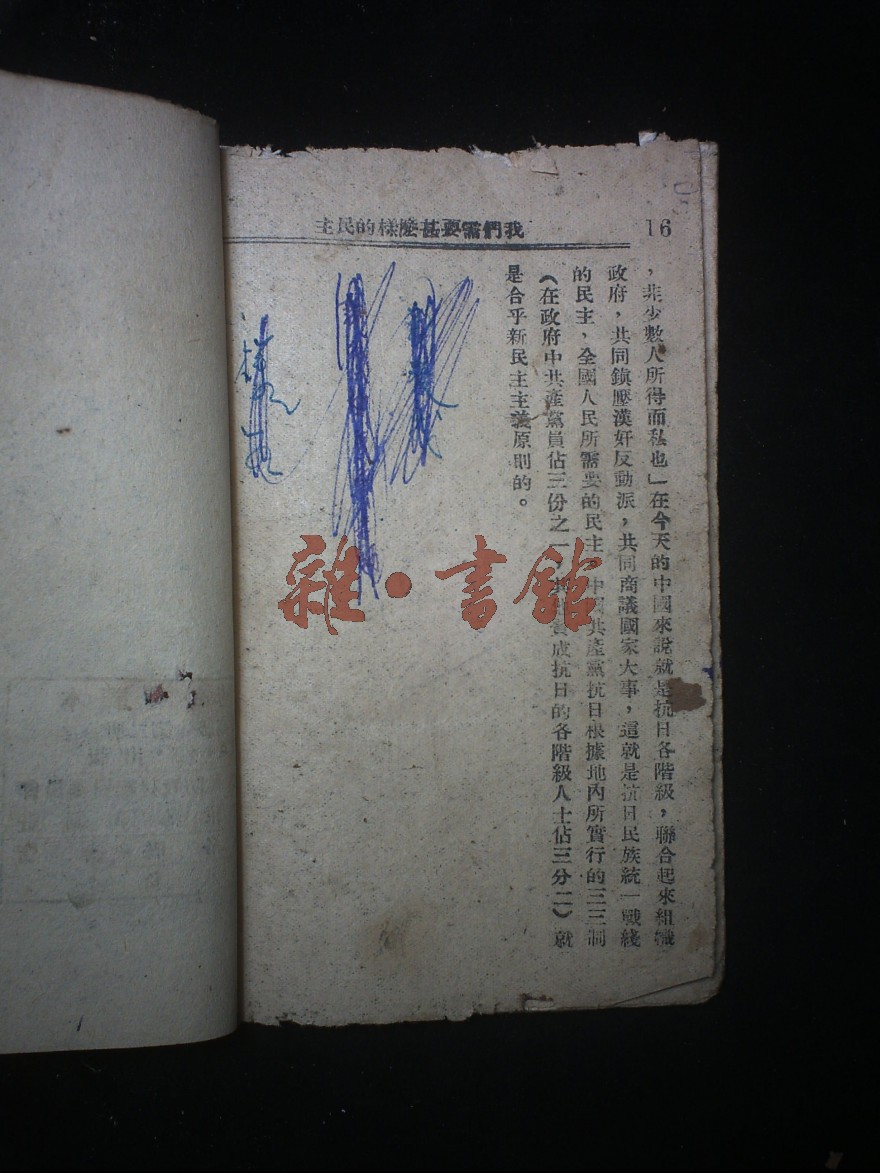 16
我們需要甚麼樣的民主
，非少數人所得而私也」在今天的中國來說就是抗日各階級，聯合起來組織
政府，共同鎮壓漢奸反動派，共同商議國家大事，這就是抗日民族統一戰綫
的民主，全國人民所需要的民主，中國共產黨抗日根據地內所實行的三三制
（在政府中共產黨員佔三份之一，其他贊成抗日的各階級人士佔三分二）就
是合乎新民主主義原則的。
雜·書館